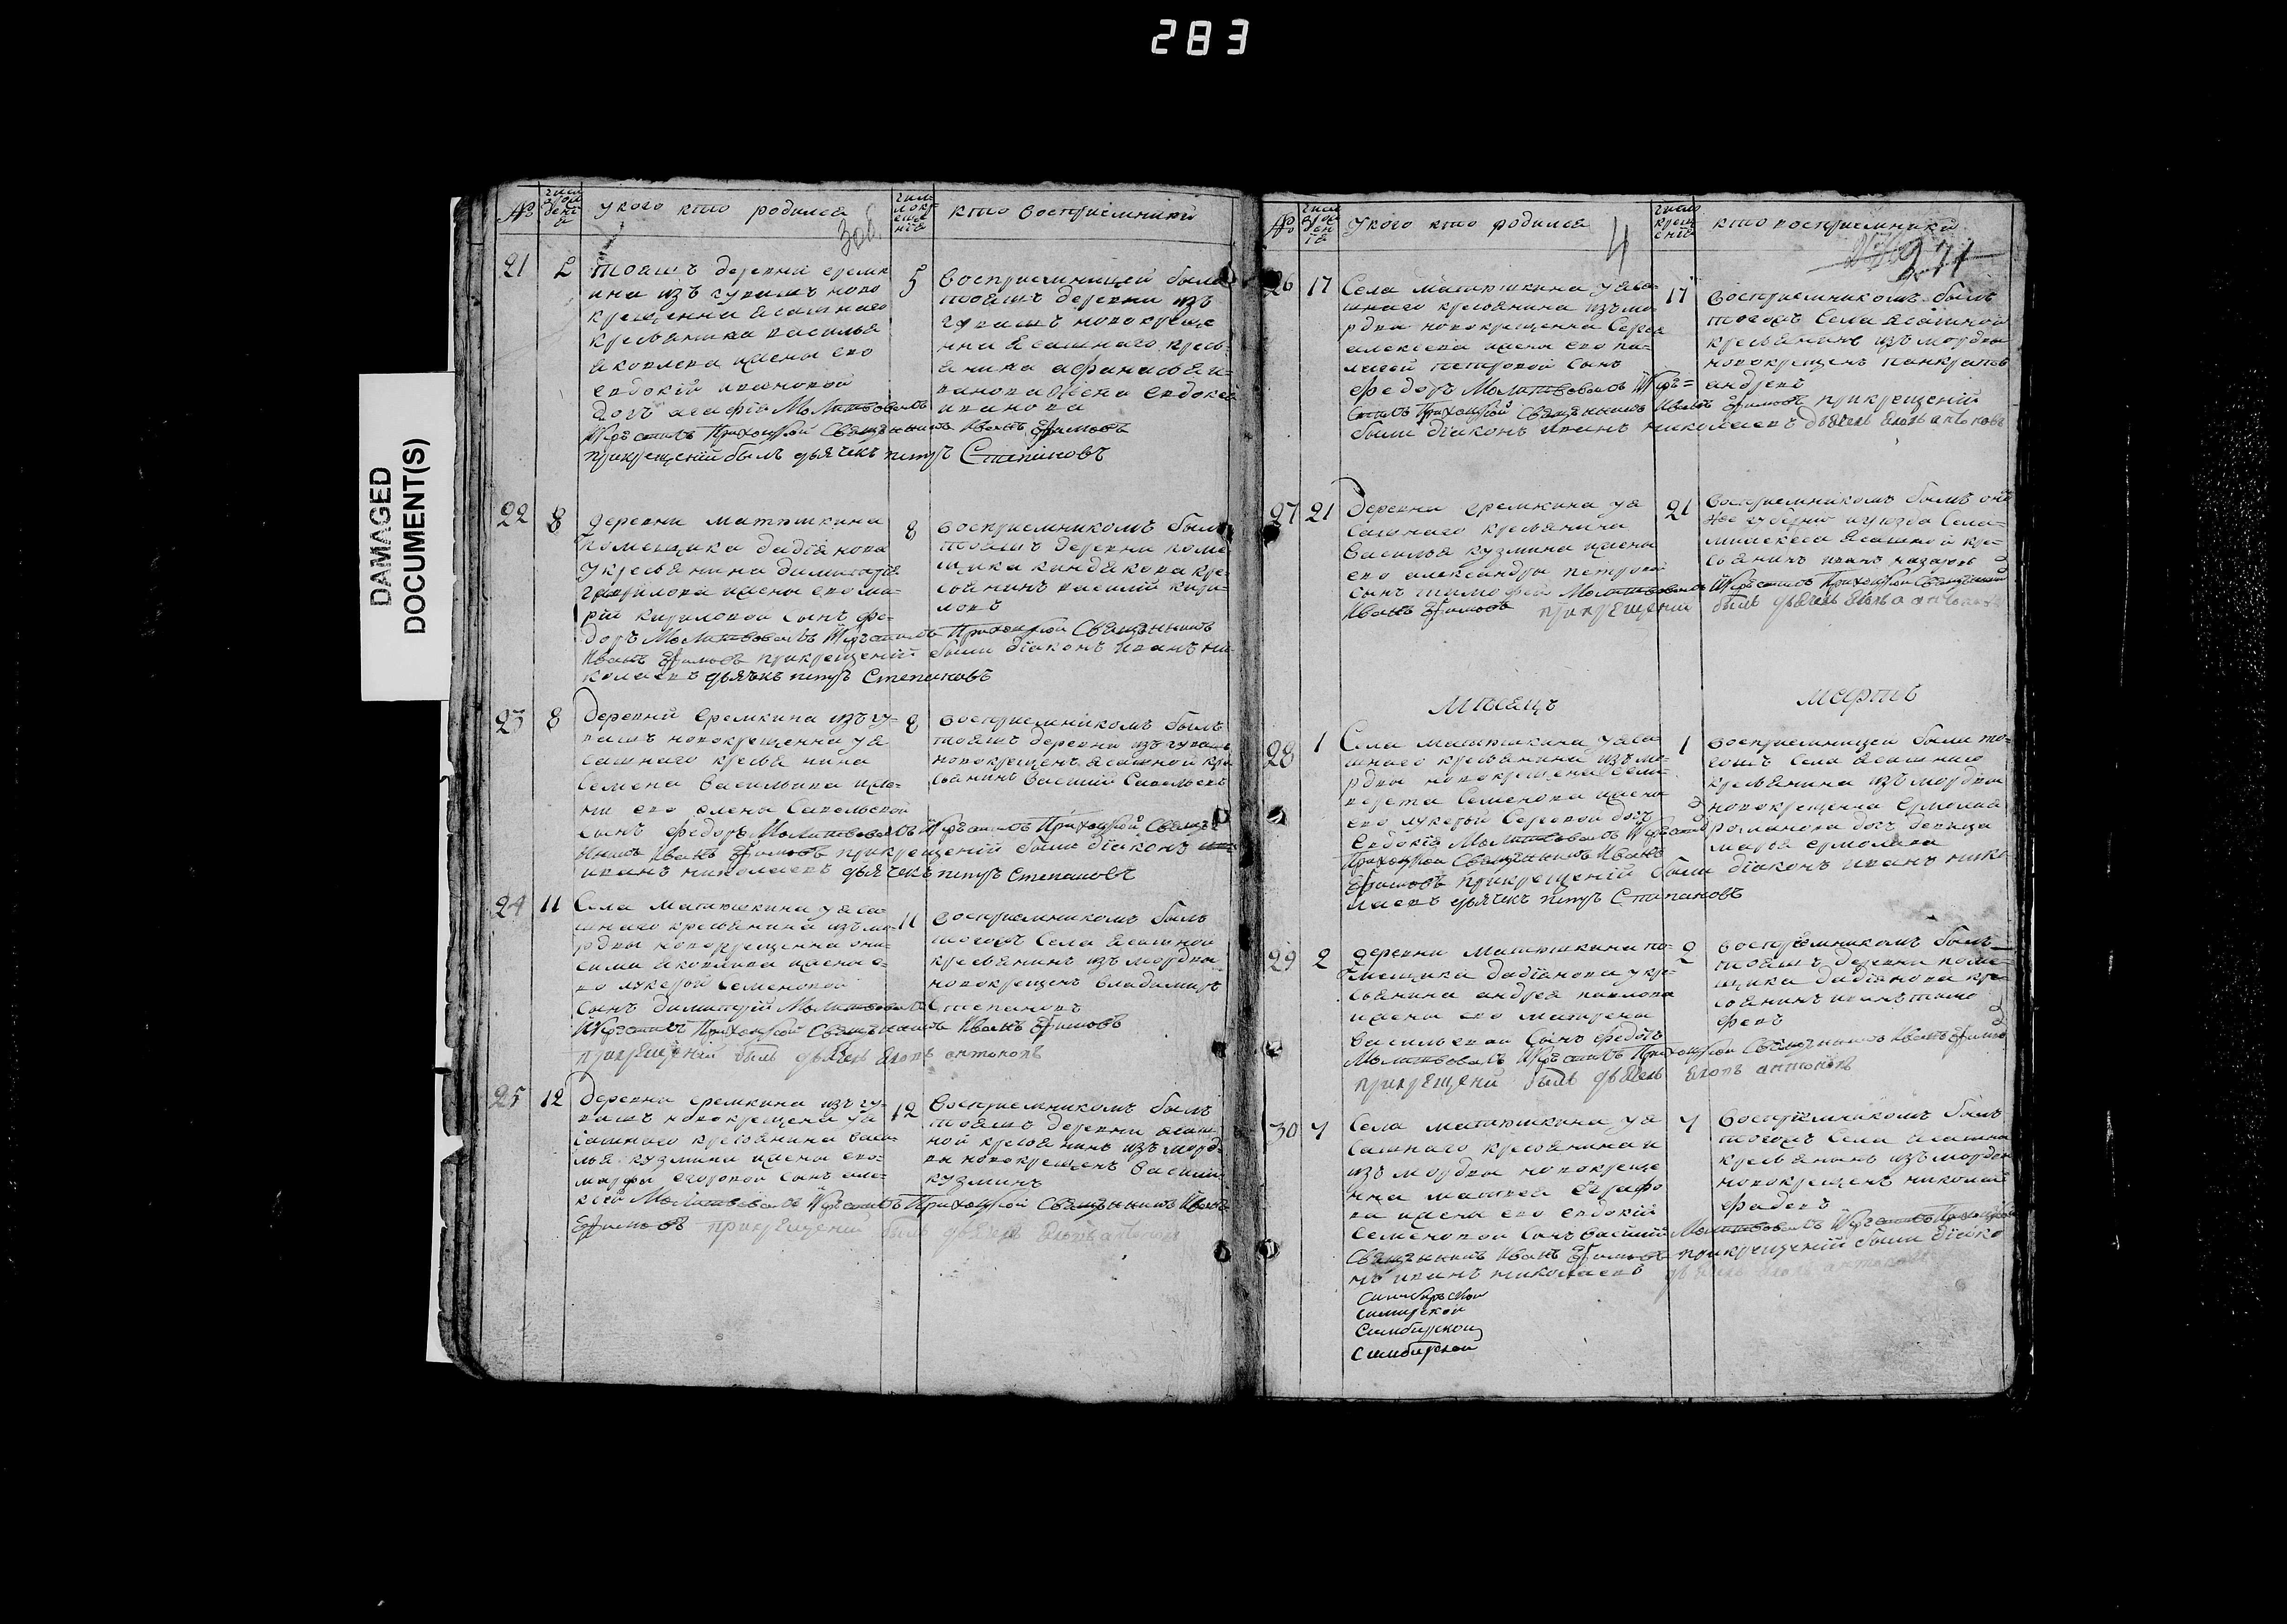 283
DAMAGED
DOCUMENT(S)
№
у кого кто родился
кто восприемники
21
5
тояжъ деревни еремк
ина изъ чувашъ ново
крещенна ясашнаго
крестьянина василья
яковлева жены его
евдокіи ивановой
дочь агафія Молитвовалъ
и Крестилъ Приходской Священникъ Иванъ Ефимовъ
прикрещеніи былъ дьячекъ петръ Степановъ
восприемницей была
тояжъ деревни изъ
чувашъ новокреще
нна ясашнаго кресть
янина афанасья и=
ванова жена евдокея
иванова
22
8
8
деревни матюшкина
помещика дадіанова
у крестьянина димитрія
гаврилова жены его ма=
ріи кириловой сынъ фе=
доръ Молитвовалъ и Крестилъ Приходской Священникъ
Иванъ Ефимовъ прикрещеніи были діаконъ иванъ ни
колаевъ дьячекъ петръ Степановъ
восприемникомъ былъ
тояжъ деревни поме
щика кандакова кре=
стьянинъ василий кири=
ловъ
23
8
8
деревни еремкина изъ чу=
вашъ новокрещенна у я
сашнаго крестьянина
семена васильива жe=
ны его олены Савельевой
сынъ федоръ Молитвовалъ и Крестилъ Приходской Священ
никъ Иванъ Ефимовъ прикрещеніи были діаконъ
иванъ николаевъ дьячекъ петръ степановъ
восприемникомъ былъ
тояжъ деревни изъ чувашъ
новокрещенъ ясашной кре
стьянинъ василий Савельевъ
24
11
11
Села матюшкина у яса
шнаго крестьянина изъ мо=
рдвы новокрещенна они=
сима яковлева жены е=
го лукерьи семеновой
сынъ димитрій Молитвовалъ
и Крестилъ Приходской Священникъ Иванъ Ефимовъ
прикрещеніи былъ дьячекъ яковъ антоновъ
восприемникомъ былъ
тогожъ Села ясашной
крестьянинъ изъ мордвы
новокрещенъ владимиръ
Степановъ
25
12
12
деревни еремкина изъ чу=
вашъ новокрещена у я
сашнаго крестьянина васи
лья кузмина жены его=
марфы егоровой сынъ але=
ксей Молитвовалъ и Крестилъ Приходской Священникъ Иванъ
Ефимовъ прикрещеніи былъ дьячекъ яковъ антоновъ
восприемникомъ былъ
тояжъ деревни ясаш
ной крестьянинъ изъ морд=
вы новокрещенъ василий
кузминъ
№
у кого кто родился
4
кто восприемники
271
26
17
17
Села матюшкина у яса=
шнаго крестьянина изъ мо
рдвы новокрещенна Сергея
алексеева жены его пе=
лагеи петровой сынъ
федоръ Молитвовалъ и Кре=
стилъ Приходской Священникъ Иванъ Ефимовъ прикрещеніи
были діаконъ иванъ николаевъ дьячекъ яковъ антоновъ
восприемникомъ былъ
тогожъ Села ясашной
крестьянинъ изъ мордвы
новокрещенъ панкратъ
андреевъ
27
21
21
деревни еремкина у я
сашнаго крестьянина
василья кузмина жены
его александры петровой
сынъ тимофей Молитвовалъ и Крестилъ Приходской Священникъ
Иванъ Ефимовъ прикрещеніи былъ дьячекъ яковъ антоновъ
восприемникомъ былъ
крестьянинъ иванъ назаровъ
мѣсяцъ
мартъ
28
1
1
Села матюшкина у яса
шнаго крестьянина изъ мо=
рдвы новокрещена
Семенова жены
его лукерьи Сергеевой дочь
Евдокія Молитвовалъ и Крестилъ
Приходской Священникъ Иванъ
Ефимовъ прикрещеніи были діаконъ иванъ нико
лаевъ дьячекъ петръ Степановъ
восприемницей была то=
гожъ Села ясашнаго
крестьянина изъ мордвы
новокрещенна Ермолая
романова дочь девица
марья ермолаева
29
2
2
деревни матюшкина по=
мещика дадіанова у кре=
стьянина андрея павлова
жены его матрены
васильевой сынъ федотъ
Молитвовалъ и Крестилъ Приходской Священникъ Иванъ Ефимовъ
прикрещеніи былъ дьячекъ яковъ антоновъ
восприемникомъ былъ
тояжъ деревни поме=
щика дадіанова кре=
стьянинъ иванъ тимо
феевъ
30
4
4
Села матюшкина у я
сашнаго крестьянина и
изъ мордвы новокреще
нна матвея
жены его евдокіи
семеновой сынъ василий Молитвовалъ и Крестилъ Приходской
Священникъ Иванъ Ефимовъ прикрещеніи были діако
нъ иванъ николаевъ дьячекъ яковъ антоновъ
восприемникомъ былъ
тогожъ Села ясашной
крестьянинъ изъ мордвы
новокрещенъ николай
фадеевъ
Симбирской
Симбирской